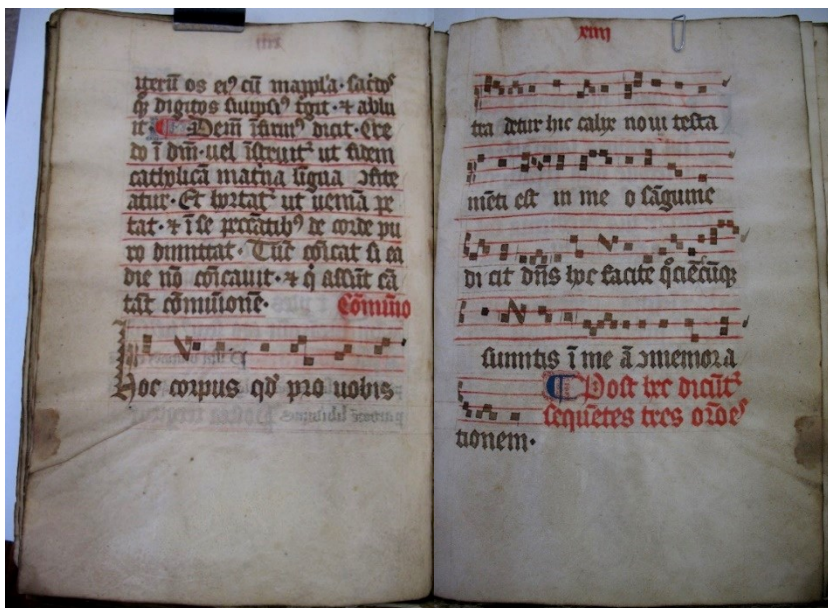 xiii
uteru os eiꝰ cũ mappl'a. sacdoˢ
qꝫ digitos suiipsiꝰ tgit. ⁊ ablu
it Dem̃ ĩfirmꝰ dicit. Cre
do ĩ dm̃. uel ĩstruit᷑ ut fidem
catholicã mat̃na lĩgua ꝯfite
atur. Et hortat᷑ ut ueniã pe
tat. ⁊ ĩ se peccãtibꝰ de corde pu
ro dimittat. Tũc cõicat si ea
die nõ cõicauit. ⁊ q̇ assũt cã
tãt cõmũionẽ. Cõmũio
Hoc corpus qđ pro uobis
xiiij
tra detur hic calyx noui testa
mẽti est in me o sãguine
di cit dñs hoc facite q̊ciẽcũqꝫ
sumitis ĩ me ã ꝯmemora
Post hec dicũt᷑
sequẽtes tres or̃deˢ
tionem.